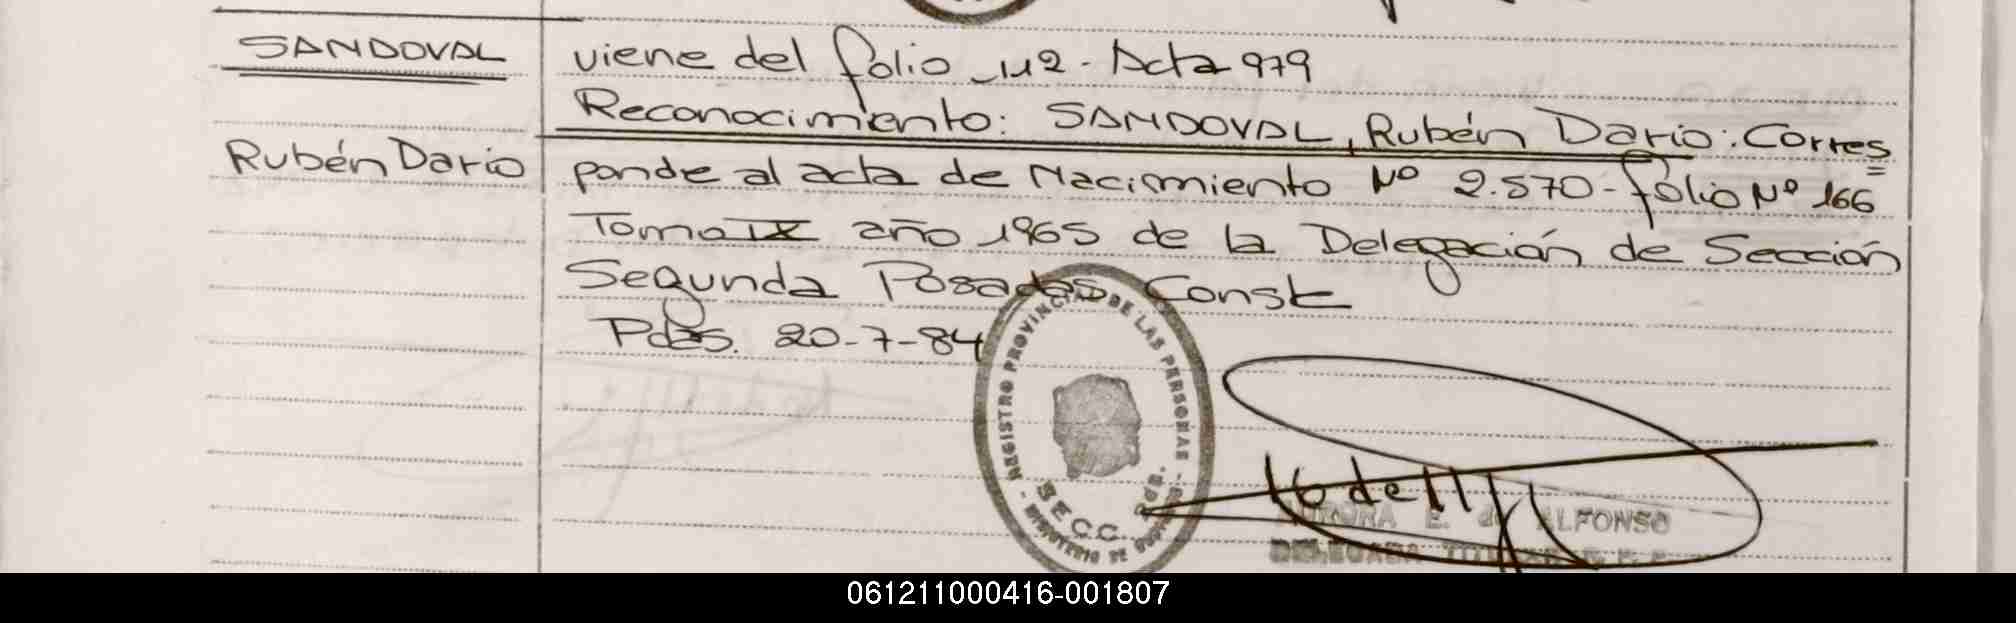 SANDOVAL
viene del folio 112 - Acta 979
Reconocimiento: SANDOVAL, Rubén Dario: Corres=
Rubén Dario
ponde al acta de Nacimiento Nº 2.570 - folio Nº 166
Tomo IX año 1965 de la Delegación de Sección
Segunda Posadas Const
Pdas. 20-7-84
REGISTRO PROVINCIAL DE LAS PERSONAS
SECC.
MINISTERIO DE
AURORA E. de ALFONSO
DELEGADA TITULAR
061211000416-001807